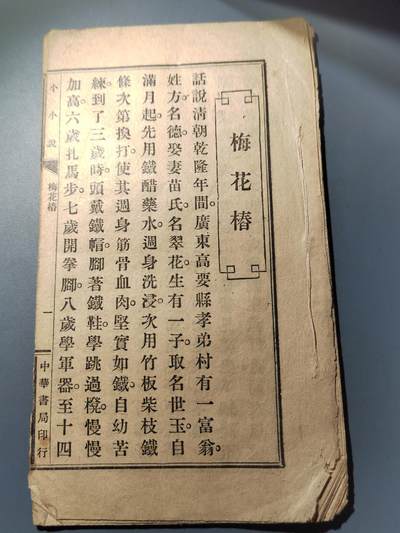 梅花樁
話說清朝乾隆年間。廣東高要縣孝弟村有一富翁。
姓方。名德。娶妻苗氏。名翠花。生有一子。取名世玉。自
滿月起。先用鐵醋藥水。週身洗浸。次用竹板柴枝鐵
條次第換打。使其週身筋骨血肉。堅實如鐵。自幼苦
練。到了三歲時。頭戴鐵帽。腳著鐵鞋。學跳過櫈。慢慢
加高。六歲扎馬步。七歲開拳腳。八歲學軍器。至十四
小小說
梅花樁
一
中華書局印行